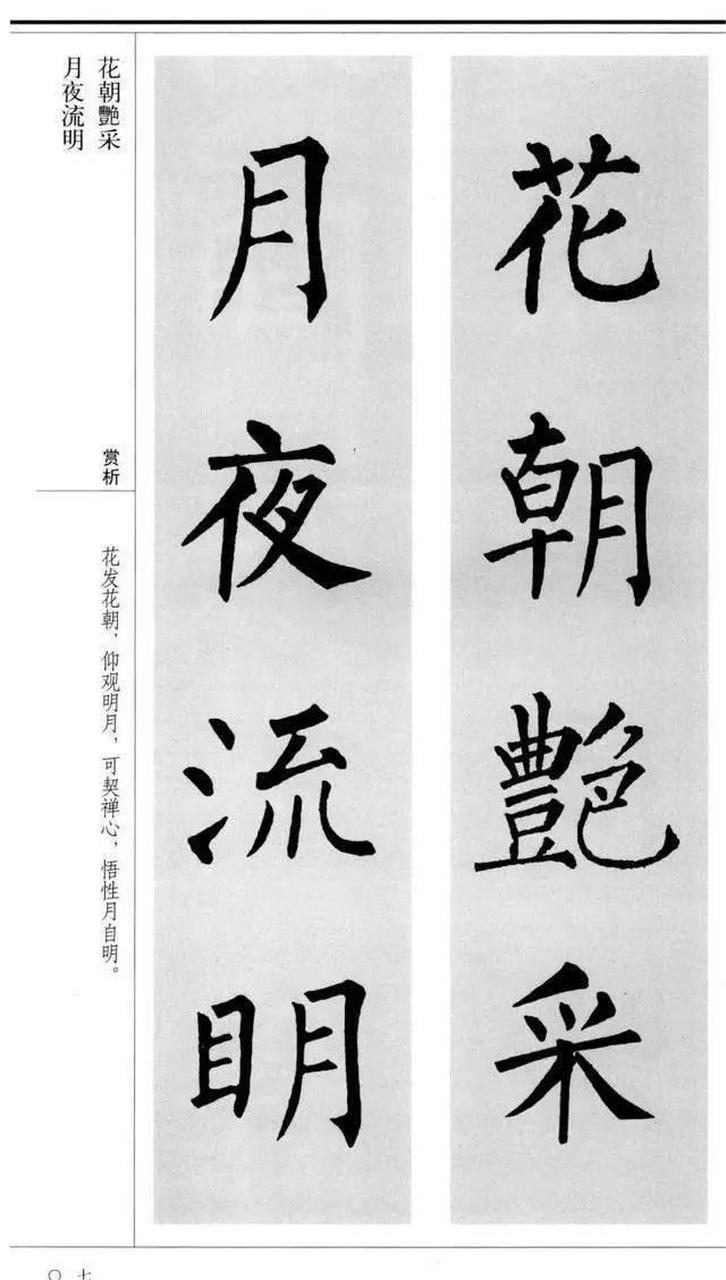 花朝艷采
月夜流明
花朝艷采
月夜流明
赏析
花发花朝，仰观明月，可契禅心，悟性月自明。
〇七